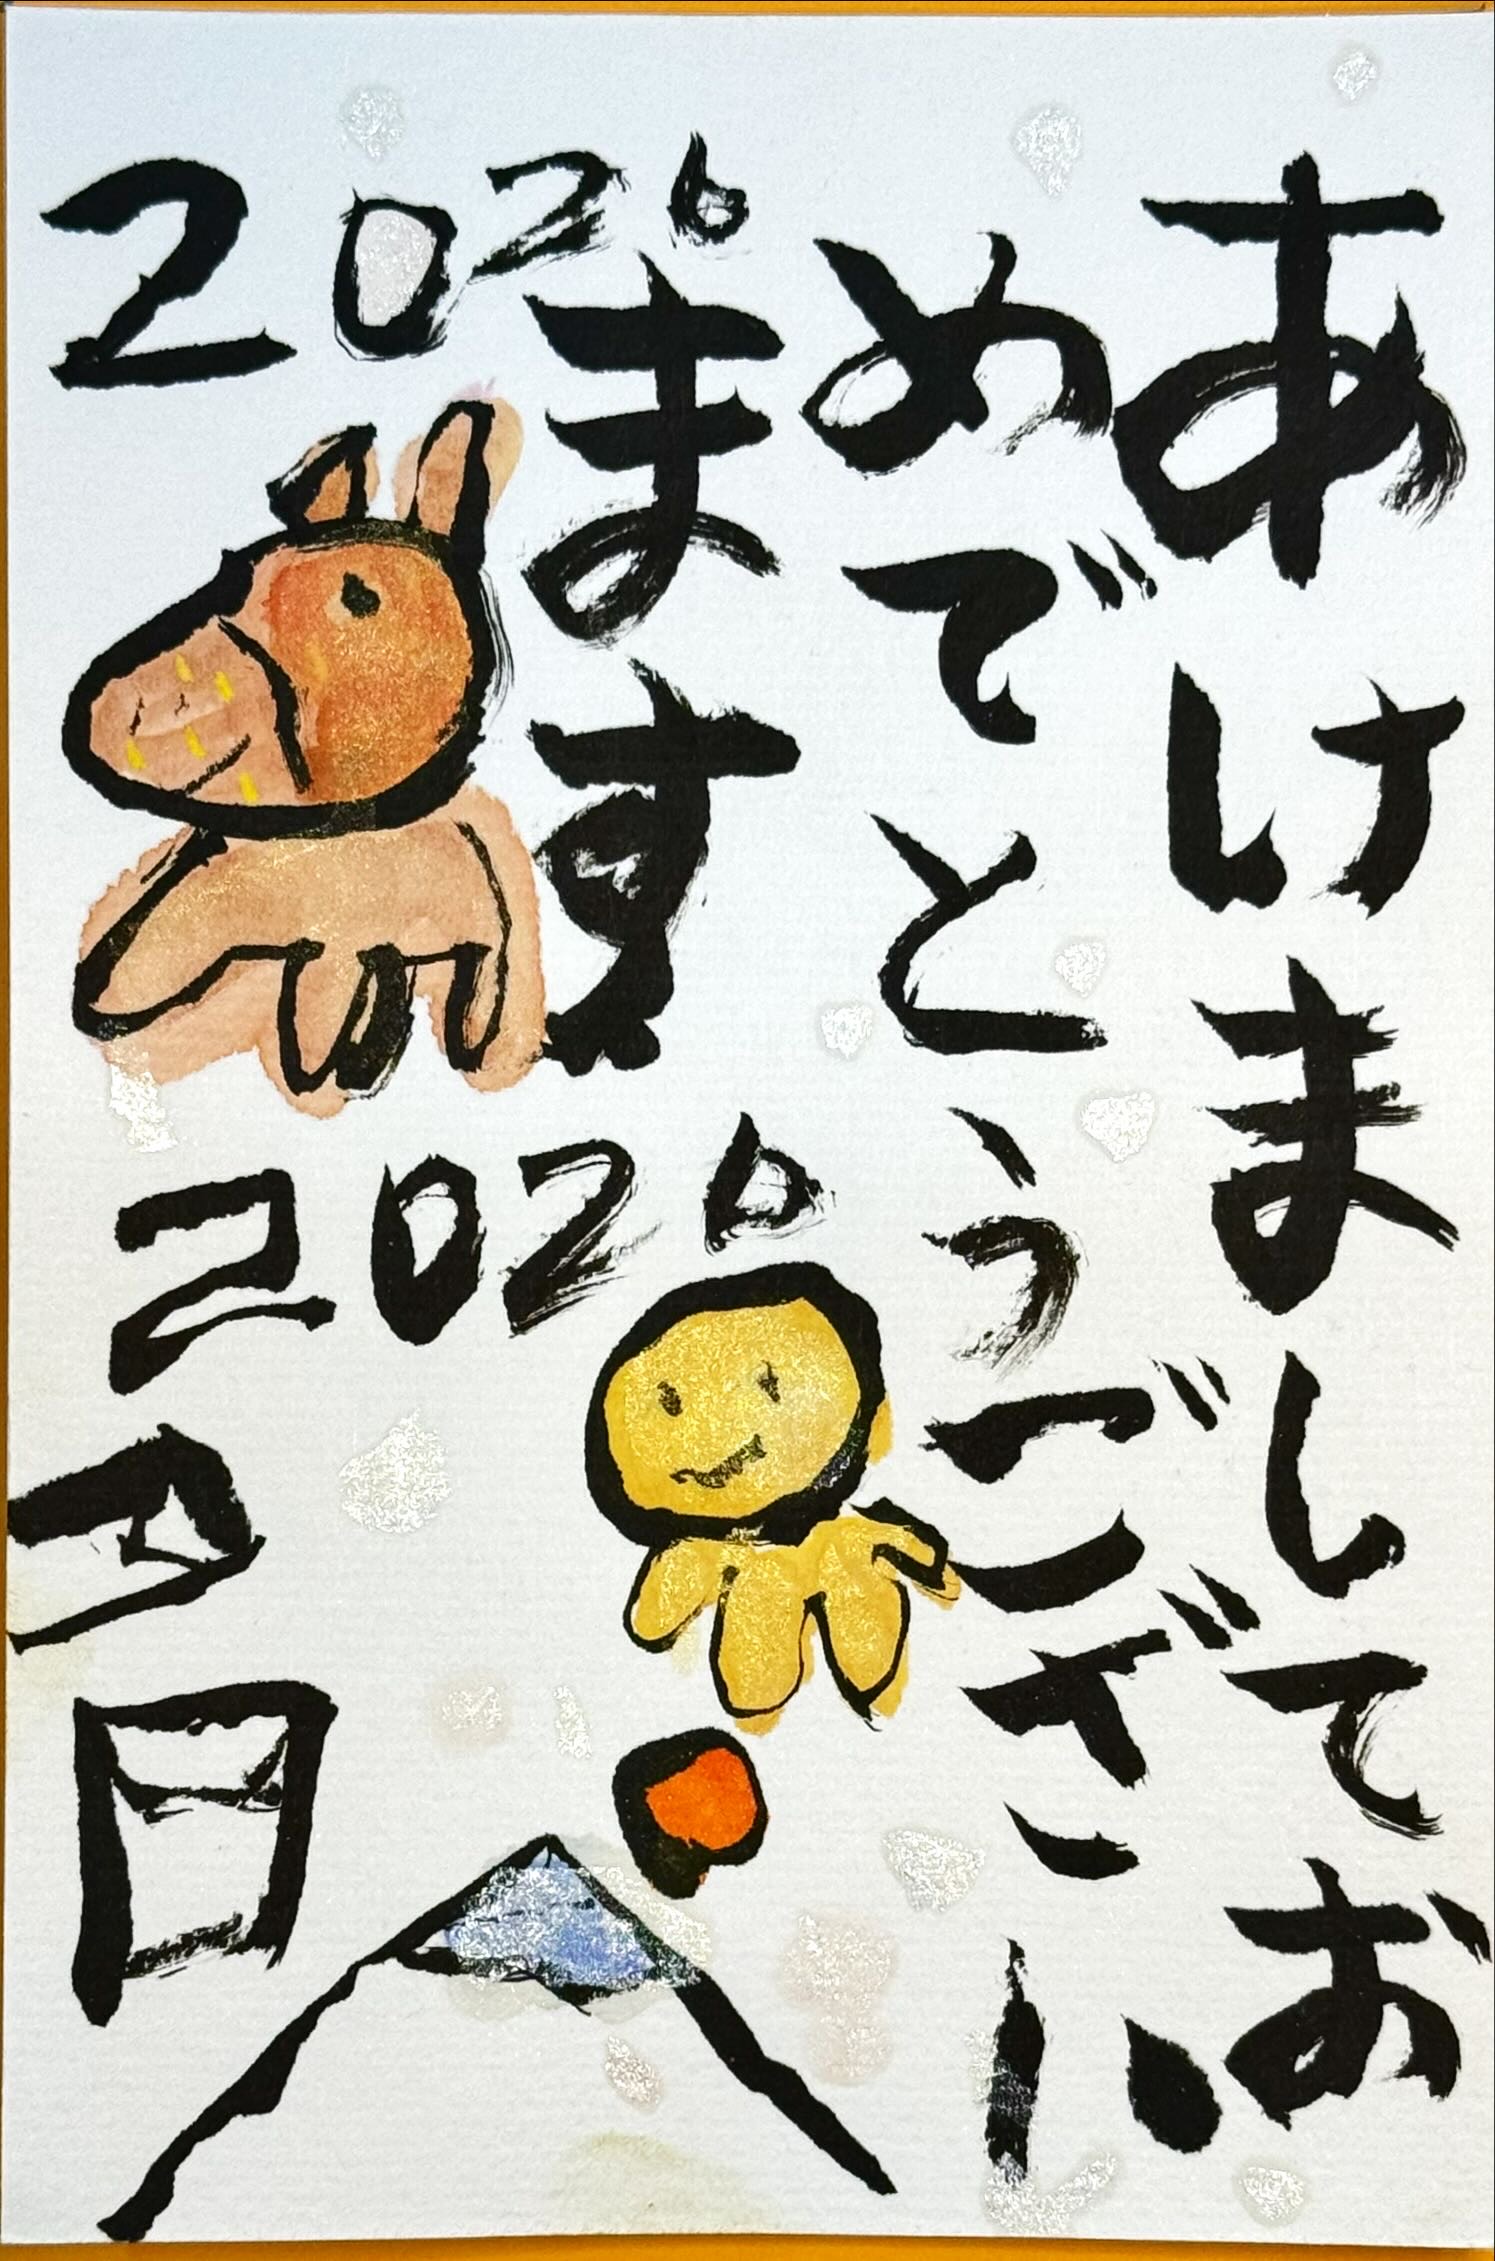 あけましてお
めでとうござい
ます
2026
2026
夕日